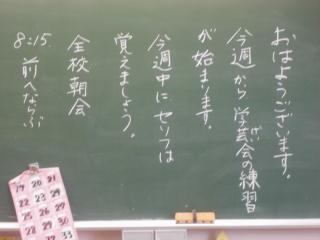 おはようございます。
今週から学芸会の練習
げい
が始まります。
今週中にセリフは
覚えましょう。
全校朝会
8:15 前へならぶ
19 20 21
22 23
29
33